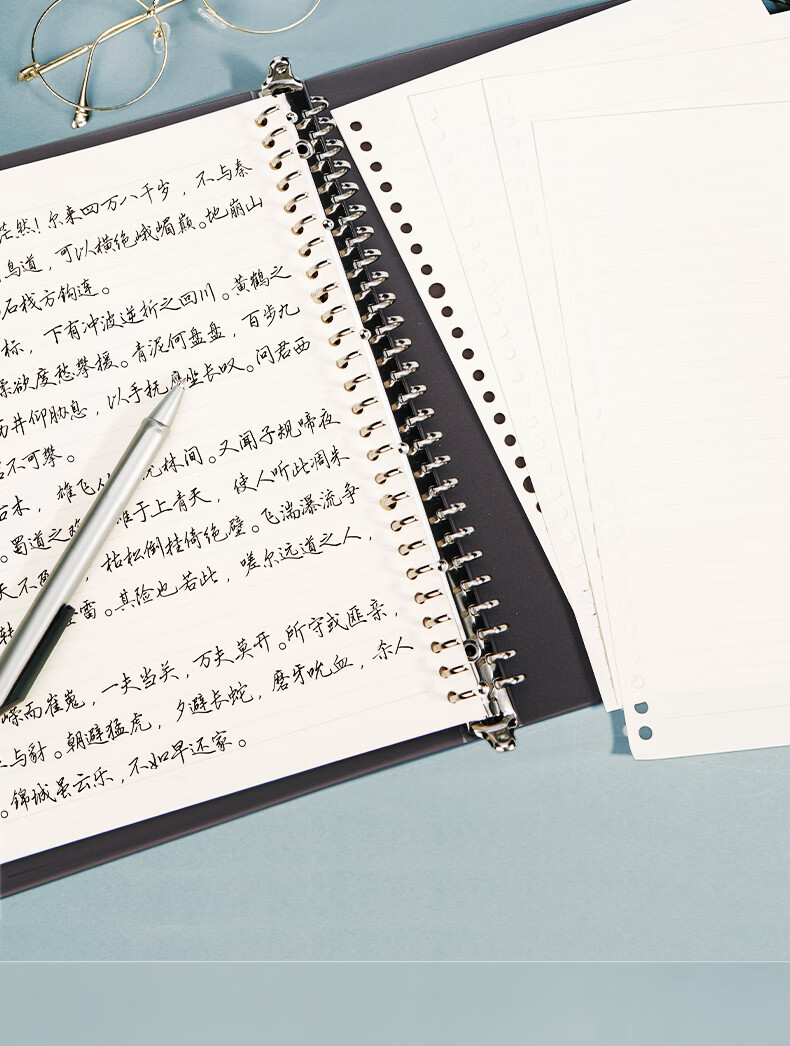 茫然！尔来四万八千岁，不与秦
鸟道，可以横绝峨嵋巅。地崩山
石栈方钩连。
标，下有冲波逆折之回川。黄鹤之
猱欲度愁攀援。青泥何盘盘，百步九
历井仰胁息，以手抚膺坐长叹。问君西
岩不可攀。
古木，雄飞林间。又闻子规啼夜
。蜀道之难于上青天，使人听此凋朱
天不，枯松倒挂倚绝壁。飞湍瀑流争
转雷。其险也若此，嗟尔远道之人，
嵘而崔嵬，一夫当关，万夫莫开。所守或匪亲，
与豺。朝避猛虎，夕避长蛇，磨牙吮血，杀人
。锦城虽云乐，不如早还家。